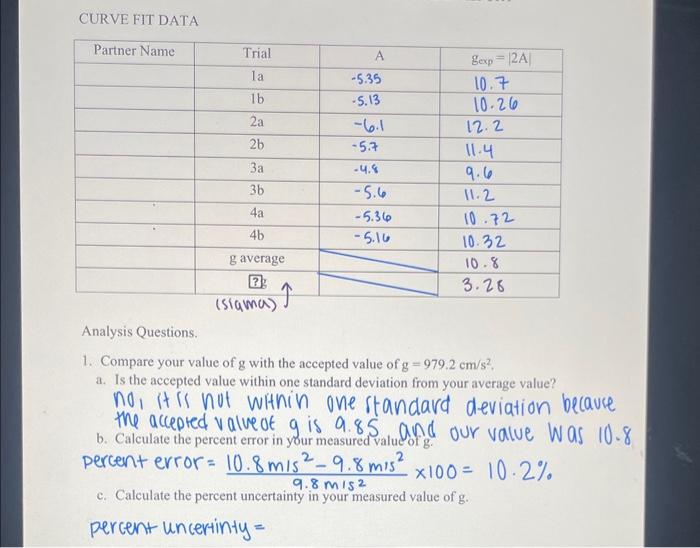 CURVE FIT DATA
Partner Name Trial A gexp = |2A|
1a -5.35 10.7
1b -5.13 10.26
2a -6.1 12.2
2b -5.7 11.4
3a -4.8 9.6
3b -5.6 11.2
4a -5.36 10.72
4b -5.16 10.32
g average 10.8
? 3.28
(sigma)
Analysis Questions.
1. Compare your value of g with the accepted value of g = 979.2 cm/s².
a. Is the accepted value within one standard deviation from your average value?
no, it is not within one standard deviation because
the accepted value of g is 9.85 and our value was 10.8
b. Calculate the percent error in your measured value of g.
percent error = 10.8 m/s² - 9.8 m/s² x100 = 10.2%
9.8 m/s2
c. Calculate the percent uncertainty in your measured value of g.
percent uncertinty =